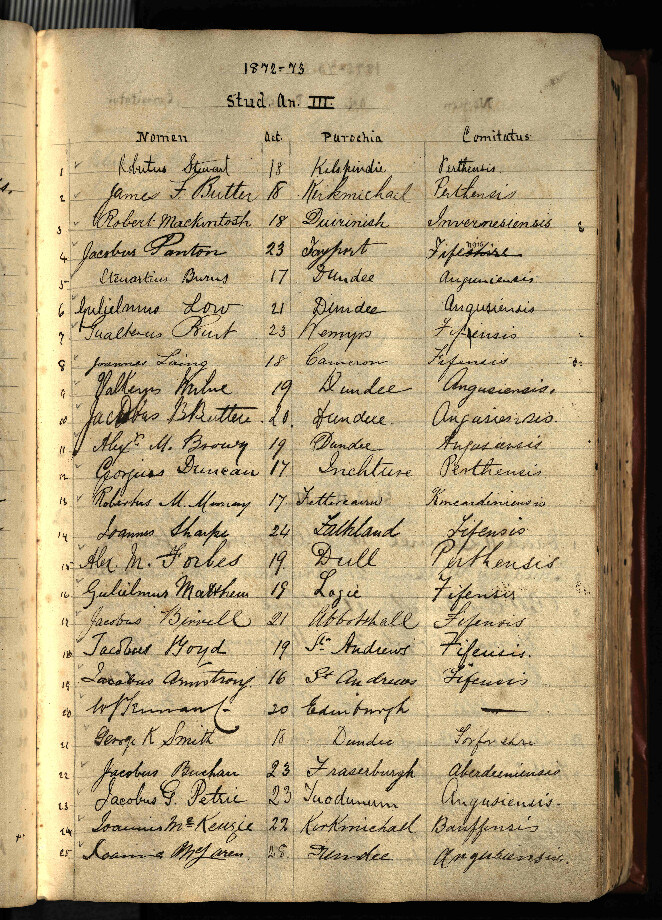 1872-73
Stud. An. III.
Nomen Aet. Parochia Comitatus
1 Robertus Stewart 18 Kilspindie Perthensis
2 James F. Butter 18 Kirkmichael Perthensis
3 Robert Mackintosh 18 Duirinish Invernesiensis
4 Jacobus Panton 23 Tayport Fife
5 Stewartus Burns 17 Dundee Angusiensis
6 Gulielmus Low 21 Dundee Angusiensis
7 Gualterus 23 Wemyss Fifensis
8 Joannes Laing 18 Cameron Fifensis
9 Milne 19 Dundee Angusiensis.
10 Jacobus B. Buttere 20. Dundee Angusiensis.
11 Alexr. M. Brown 19 Dundee Angusensis
12 Georgius Duncan 17 Inchture Perthensis
13 Robertus M. Murray 17 Fettercairn Kincardiniensis
14 Ioannes Sharpe 24 Falkland Fifensis
15 Alex M. Forbes 19 Dull Perthensis
16 Gulielmus Matthew 19 Logie Fifensis
17 Jacobus Birrell 21 Abbotshall Fifensis
18 Jacobus Boyd 19 St. Andrews Fifensis.
19 Jacobus Armstrong. 16 St Andrews Fifensis
20 20 Edinburgh —
21 George K Smith 18 Dundee Forfarshire
22 Jacobus Buchan 23 Fraserburgh Aberdeeniensis
23 Jacobus G. Petrie 23 Taodunum Angusiensis.
24 Ioannes McKenzie 22 Kirkmichael Banffensis
25 Ioannes McLaren 28 Dundee Angusiensis.